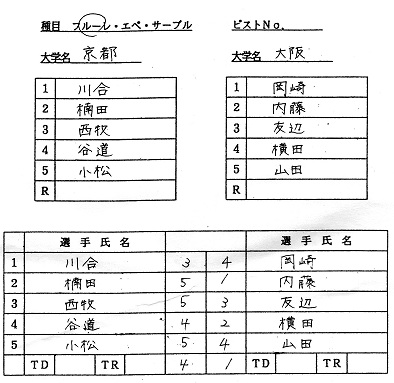 種目 フルーレ・エペ・サーブル ピストNo.
大学名 京都 大学名 大阪
1 川合 1 岡崎
2 楠田 2 内藤
3 西牧 3 友辺
4 谷道 4 横田
5 小松 5 山田
R R
選手氏名 選手氏名
1 川合 3 4 岡崎
2 楠田 5 1 内藤
3 西牧 5 3 友辺
4 谷道 4 2 横田
5 小松 5 4 山田
TD TR 4 1 TD TR